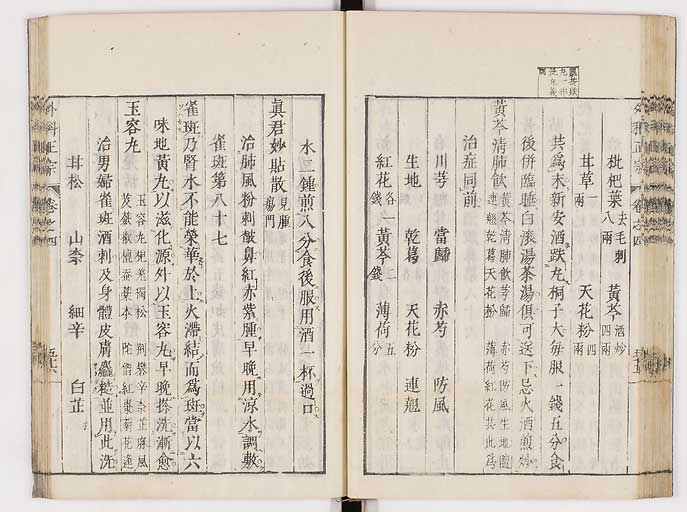 枇杷葉 去毛刺 八兩 黃芩 酒炒 四兩
甘草 一兩 天花粉 四兩
共為末新安酒跌丸桐子大每服一錢五分食
後併臨睡白滾湯茶湯俱可送下忌火酒煎炒
黃芩清肺飲 黃芩清肺飲芎歸 赤芍防風生地隨 連翹乾葛天花粉 薄荷紅花共此為
治症同前
川芎 當歸 赤芍 防風
生地 乾葛 天花粉 連翹
紅花 各一錢 黃芩 二錢 薄荷 五分
水二鍾煎八分食後服用酒一杯過口
真君妙貼散 見腫瘍門
治肺風粉刺皶鼻紅赤紫腫早晚用涼水調敷
雀斑第八十七
雀斑乃腎水不能榮華於上火滯結而為斑當以六
味地黃丸以滋化源外以玉容丸早晚搽洗漸愈
玉容丸
治男婦雀斑酒刺及身體皮膚麤糙並用此洗
甘松 山柰 細辛 白芷
外科正宗 卷之四